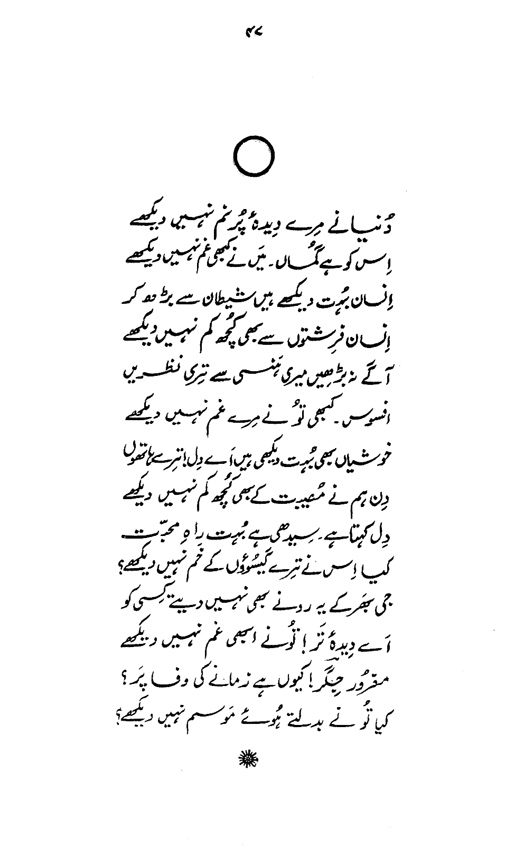 ۴۷
دُنیا نے مِرے دِیدۂ پُرنم نہیں دیکھے
اِس کو ہے گُماں۔ مَیں نے کبھی غم نہیں دیکھے
اِنسان بُہت دیکھے ہیں شیطان سے بڑھ کر
اِنسان فرِشتوں سے بھی کُچھ کم نہیں دیکھے
آگے نہ بڑھیں میری ہنسی سے تِری نظریں
افسوس۔ کبھی تُو نے مِرے غم نہیں دیکھے
خوشیاں بھی بُہت دیکھی ہیں اَے دِل! تِرے ہاتھوں
دِن ہم نے مُصیبت کے بھی کُچھ کم نہیں دیکھے
دِل کہتا ہے۔ سیدھی ہے بُہت راہِ محبّت
کیا اِس نے تِرے گیسُوؤں کے خم نہیں دیکھے؟
جی بھر کے یہ رونے بھی نہیں دیتے کِسی کو
اَے دِیدۂ تَر! تُو نے ابھی غم نہیں دیکھے
مغرُور جِگر! کیوں ہے زمانے کی وفا پَر؟
کیا تُو نے بدلتے ہُوئے مَوسم نہیں دیکھے؟